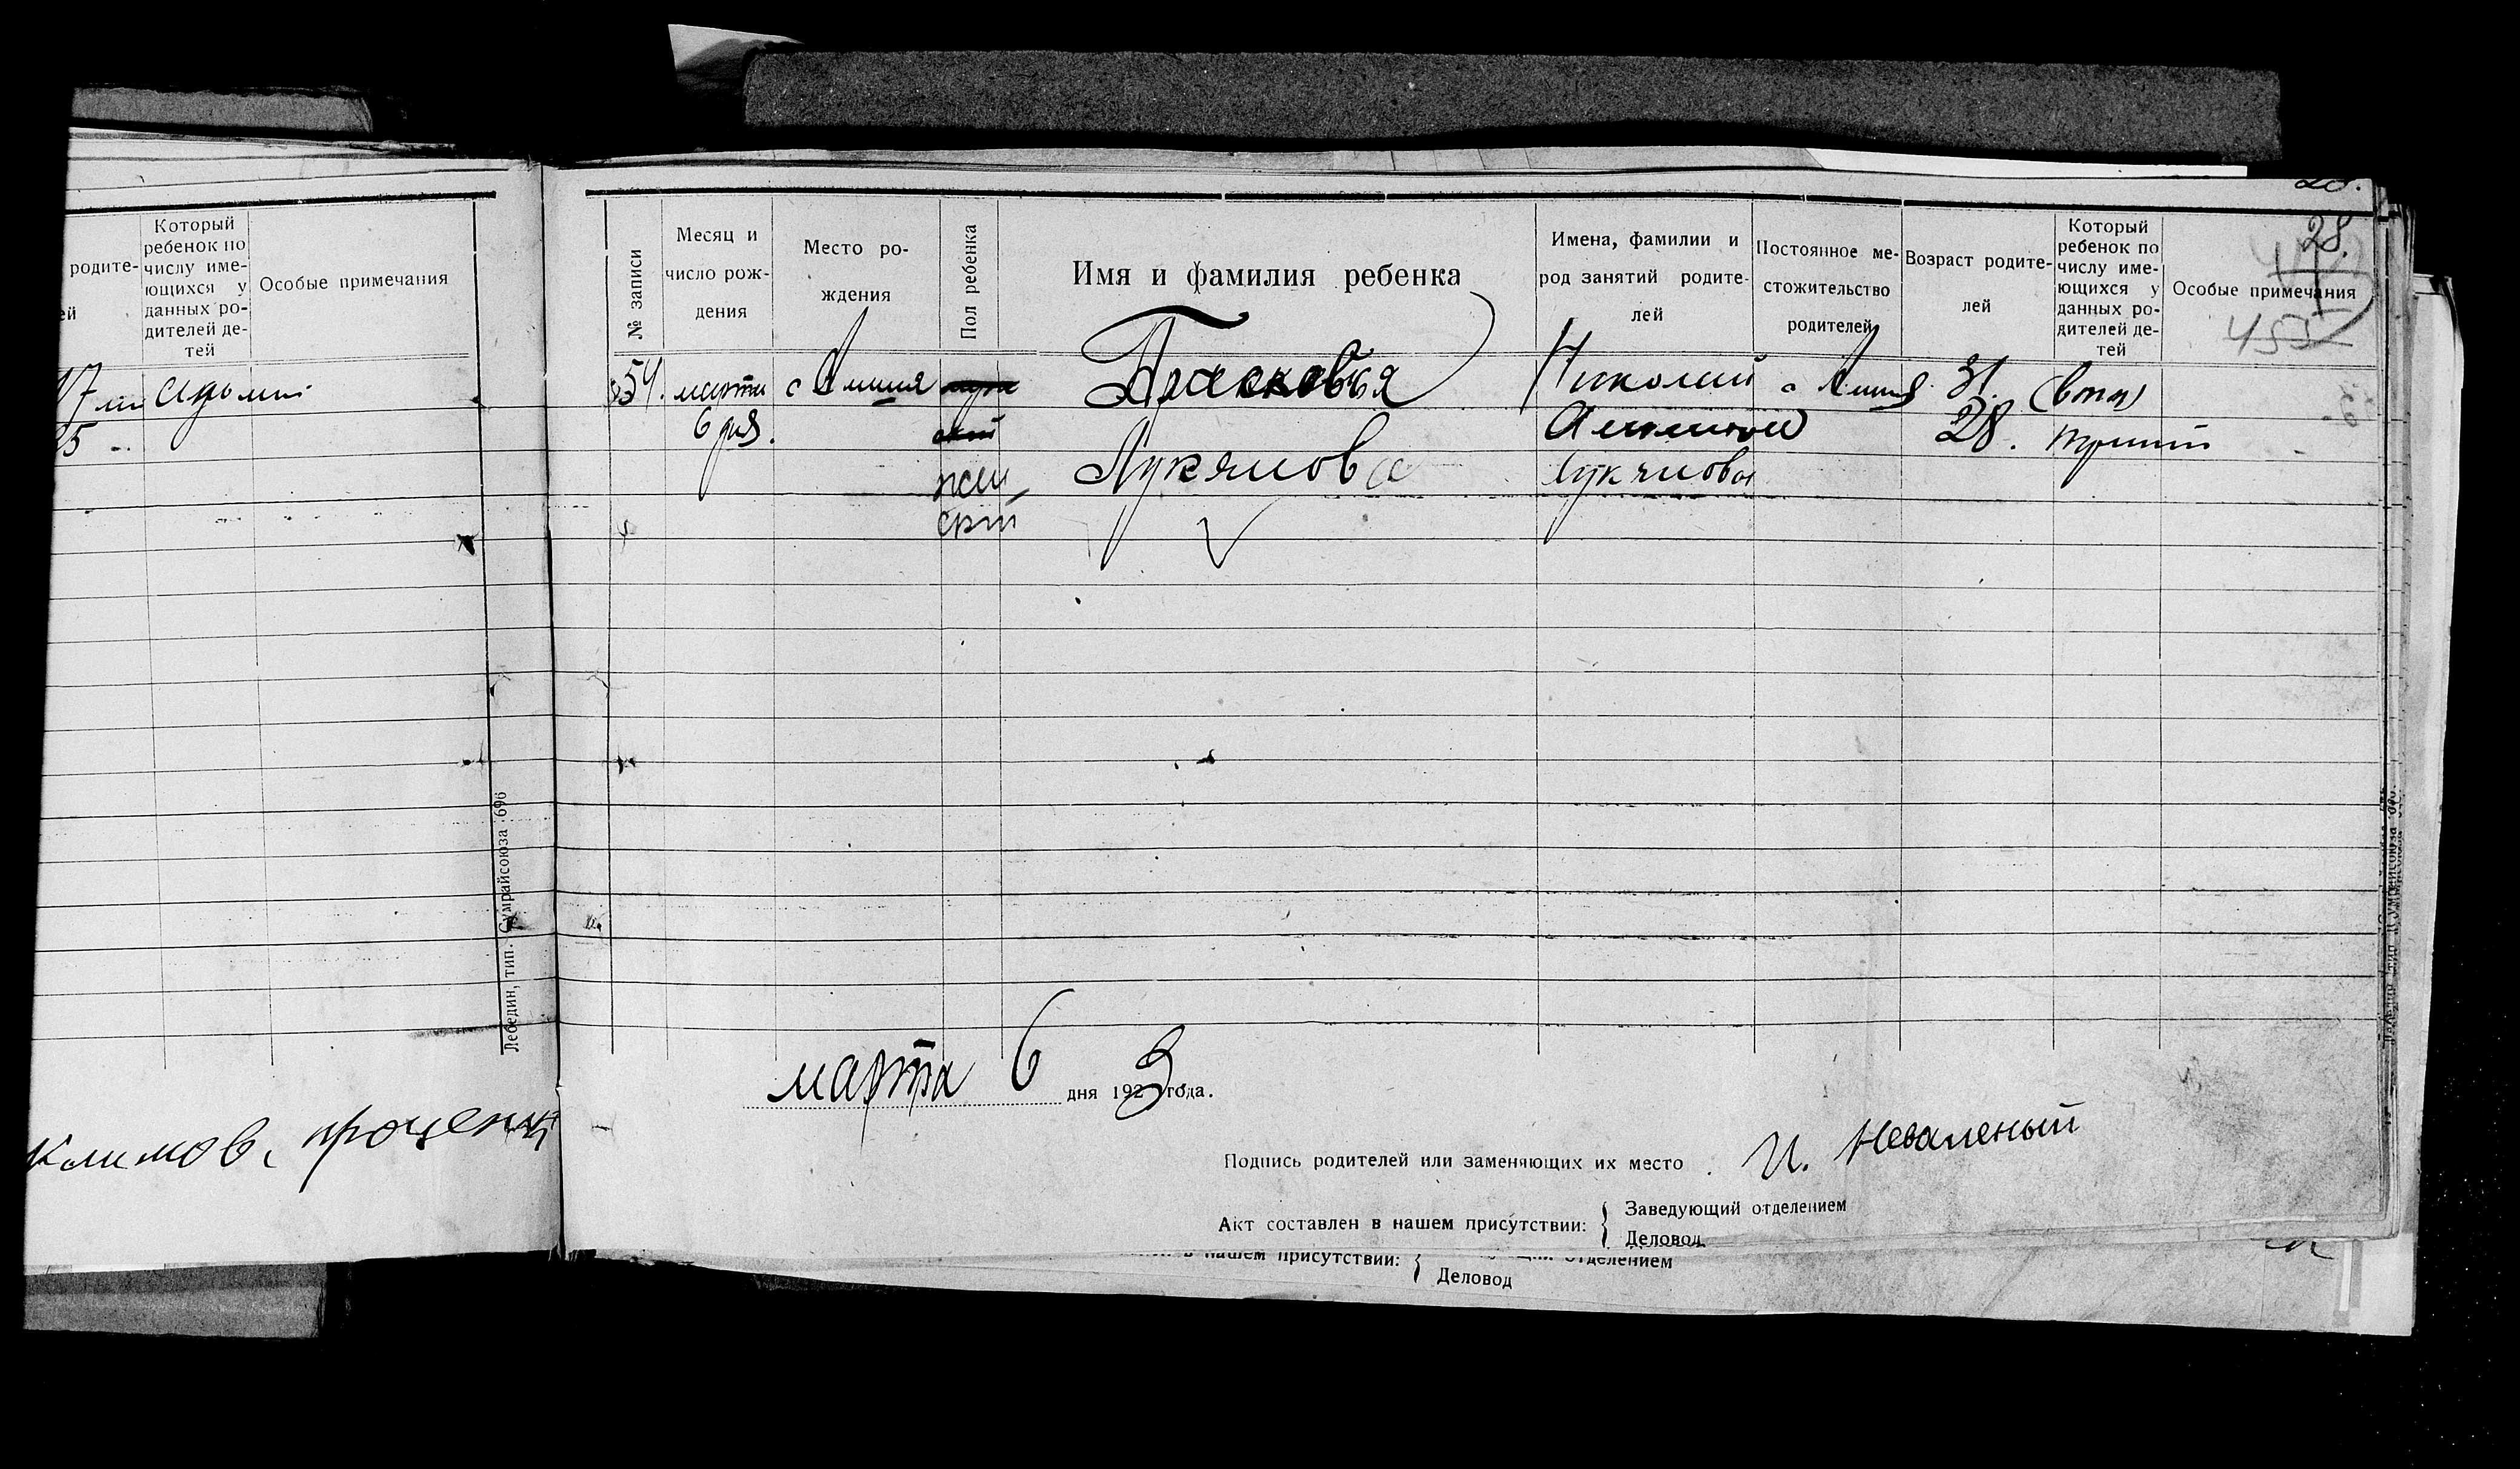 родите-
ей
Который
ребенок по
числу име-
ющихся у
данных ро-
дителей де-
тей
Особые примечания
17
15
Лебедин, тип. Сумрайсоюза 696
Климов, проценк
28.
№ записи
Месяц и
число рож-
дения
Место ро-
ждения
Пол ребенка
Имя и фамилия ребенка
Имена, фамилии и
род занятий родите-
лей
Постоянное ме-
стожительство
родителей
Возраст родите-
лей
Который
ребенок по
числу име-
ющихся у
данных ро-
дителей де-
тей
Особые примечания
28.
455
54.
марта
6 дня.
с
жен
ский
Прасковья
Лукянова
Николай
Лукянова
с
31.
28.
третий
марта 6 дня 1923 года.
Подпись родителей или заменяющих их место И. Неваленый
Акт составлен в нашем присутствии: { Заведующий отделением
Деловод
в нашем присутствии: { отделением
Деловод